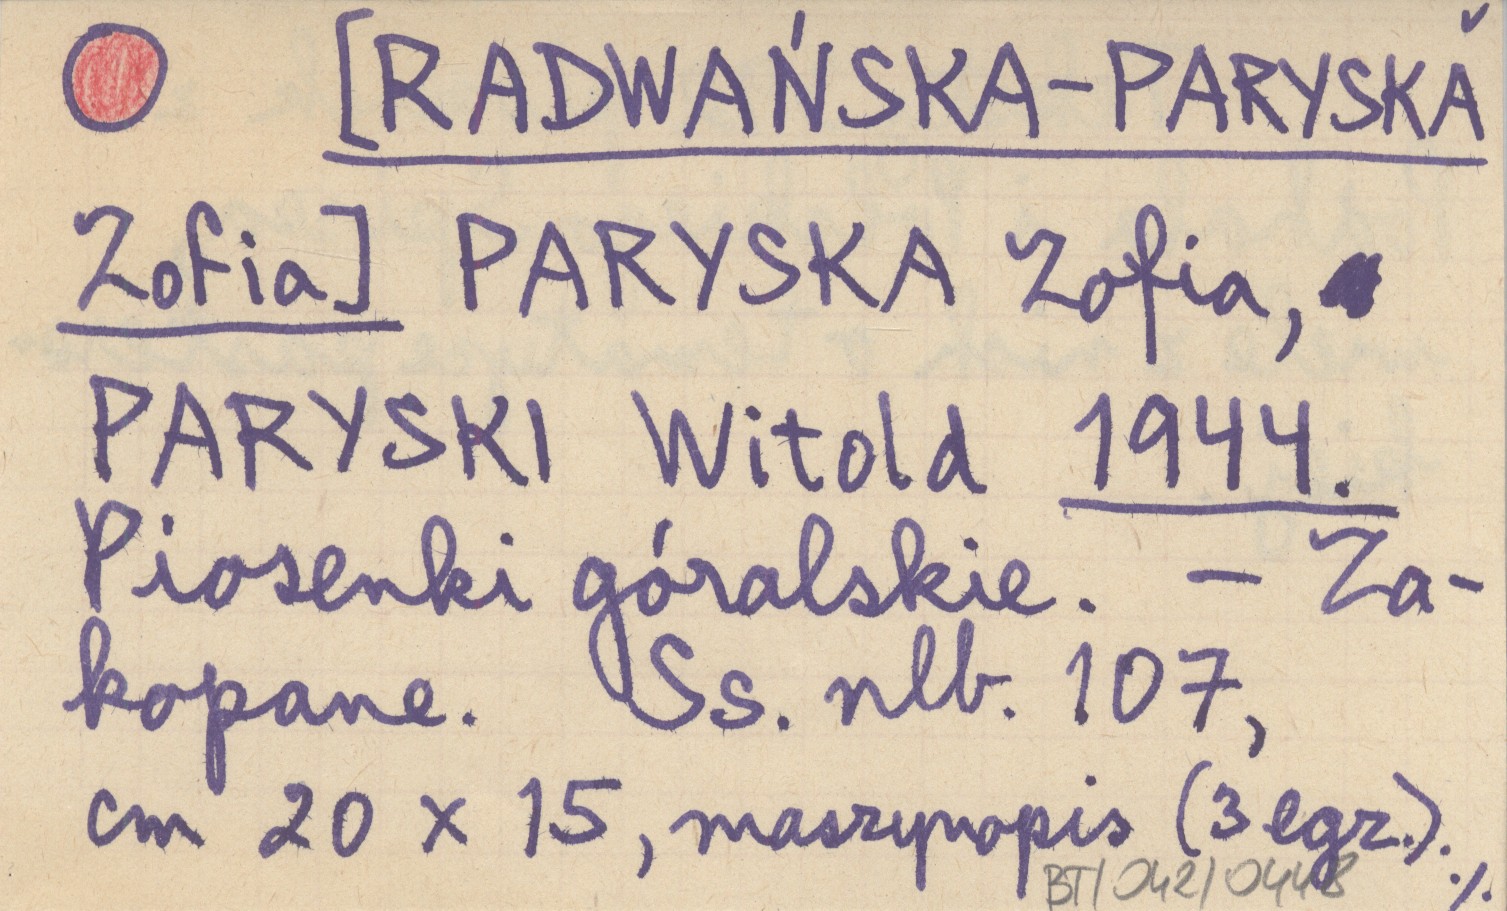 [RADWAŃSKA-PARYSKA
Zofia] PARYSKA Zofia,
PARYSKI Witold 1944.
Piosenki góralskie. – Za-
kopane. Ss. nlb. 107,
cm 20 x 15, maszynopis (3 egz.).
BT/042/0448 ./.